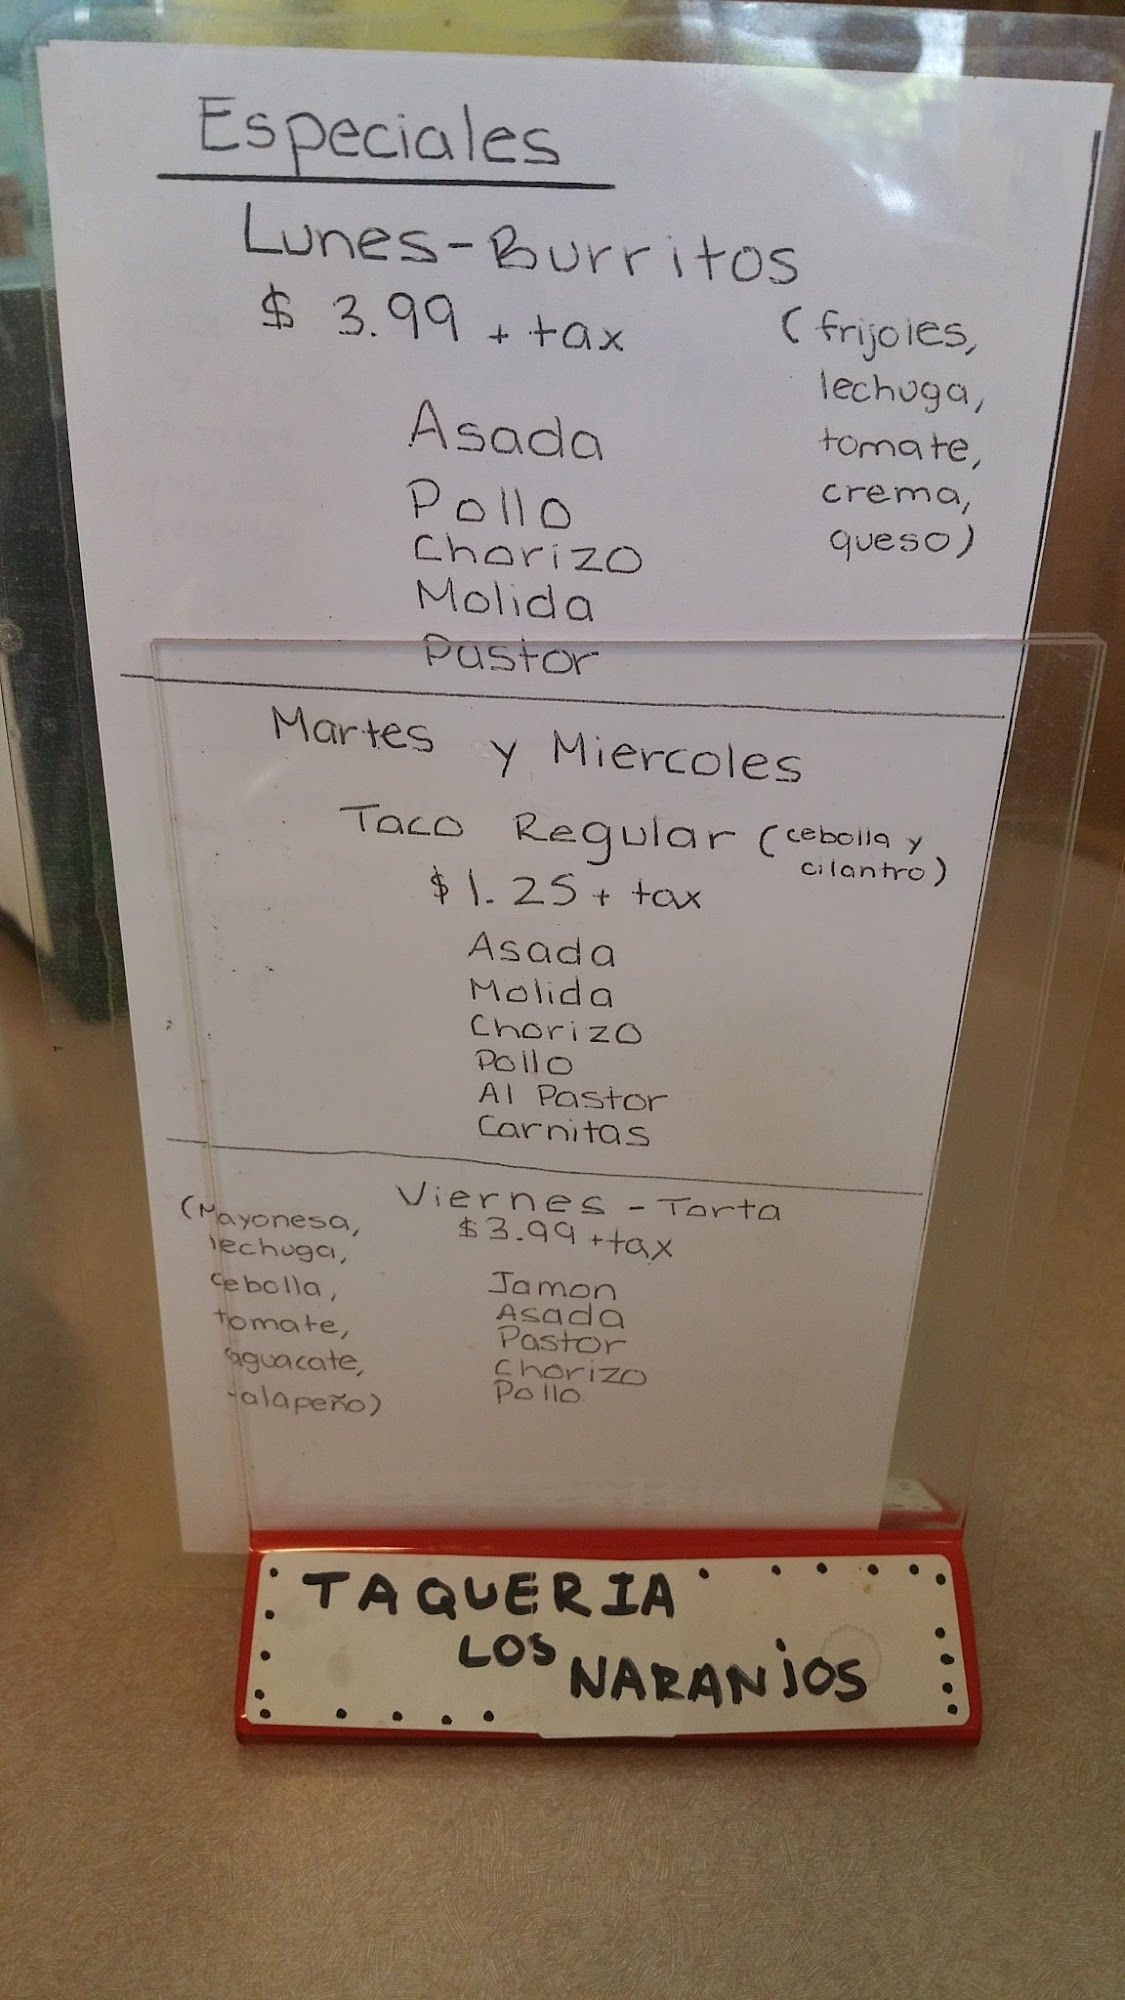 Especiales
Lunes-Burritos
$ 3.99 + tax
(frijoles,
lechuga,
tomate,
crema,
queso)
Asada
Pollo
Chorizo
Molida
Pastor
Martes y Miercoles
Taco Regular (cebolla y
cilantro)
$1.25 + tax
Asada
Molida
Chorizo
Pollo
Al Pastor
Carnitas
Viernes - Torta
$3.99 + tax
(Mayonesa,
lechuga,
cebolla,
tomate,
aguacate,
Jalapeño)
Jamon
Asada
Pastor
Chorizo
Pollo
TAQUERIA
LOS NARANJOS